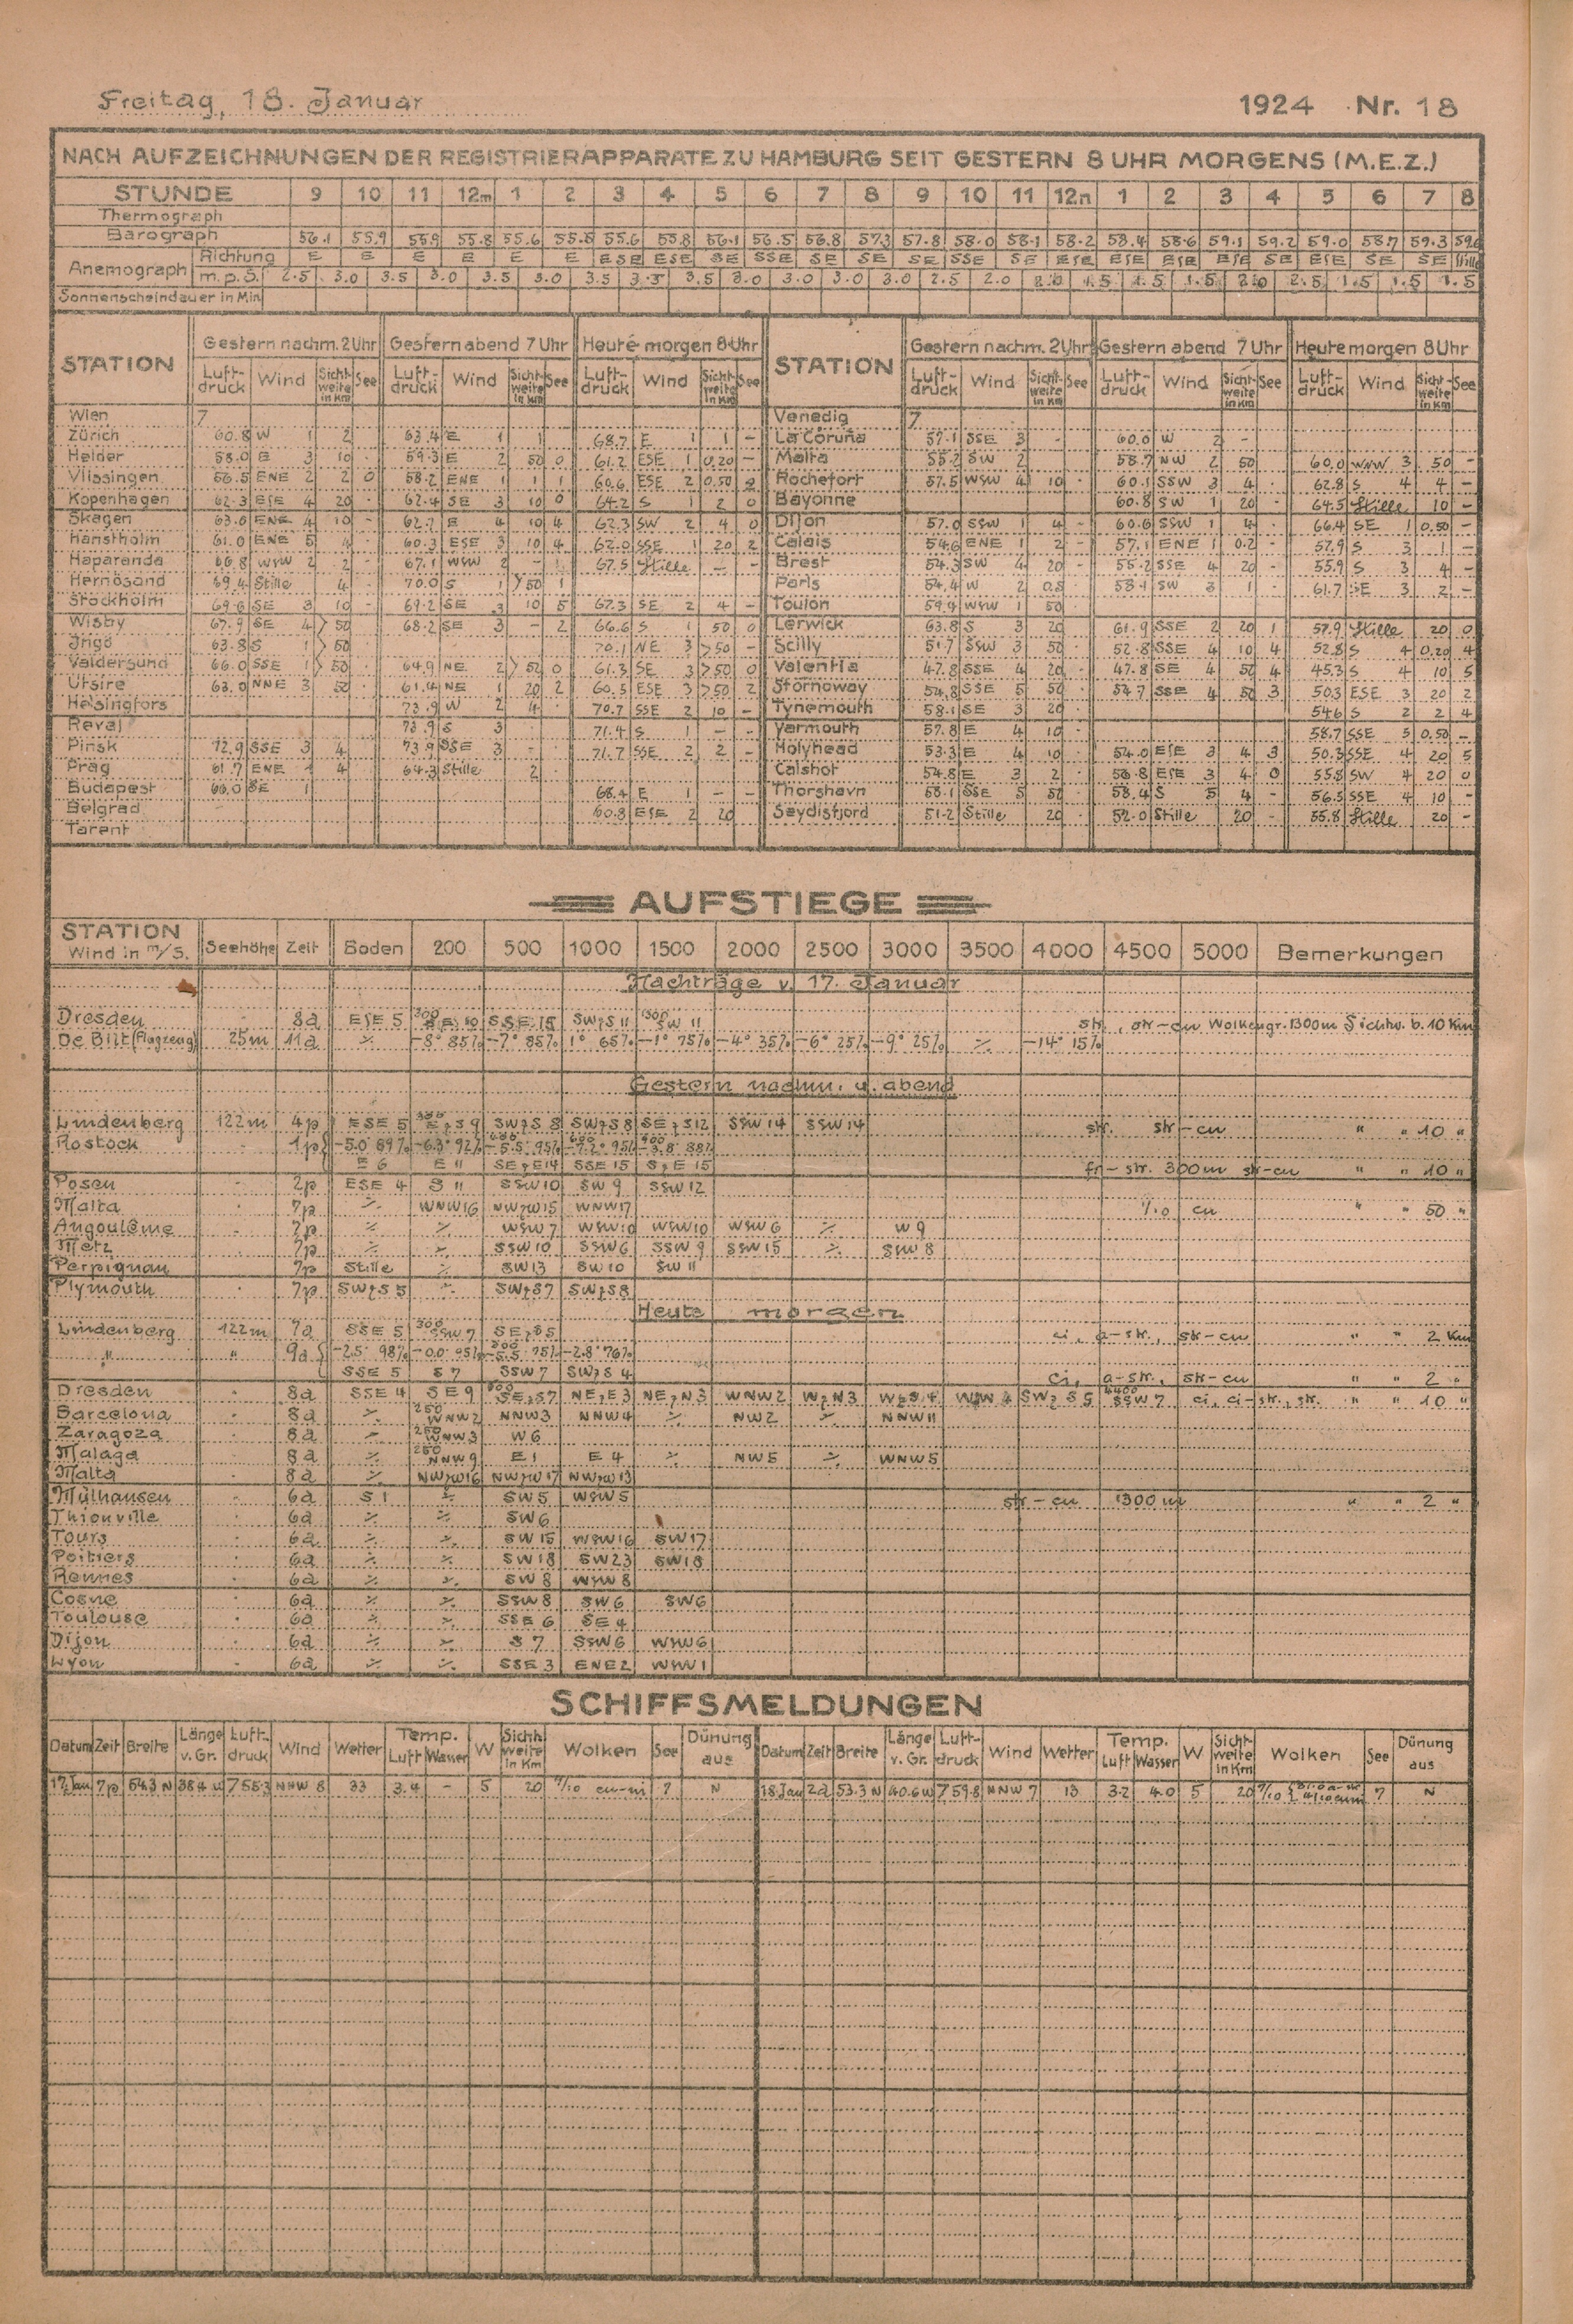 Freitag, 18. Januar 1924 Nr. 18
NACH AUFZEICHNUNGEN DER REGISTRIERAPPARATE ZU HAMBURG SEIT GESTERN 8 UHR MORGENS (M.E.Z.)
STUNDE 9 10 11 12m 1 2 3 4 5 6 7 8 9 10 11 12n 1 2 3 4 5 6 7 8
Thermograph
Barograph 56.1 55.9 55.9 55.8 55.6 55.5 55.6 55.8 56.1 56.5 56.8 57.3 57.8 58.0 58.1 58.2 58.4 58.6 59.1 59.2 59.0 58.7 59.3
Anemograph Richtung E E E E E E ESE ESE SE SSE SE SE SE SSE SE ESE ESE ESE ESE SE ESE SE SE Stille
m.p.S. 2.5 3.0 3.5 3.0 3.5 3.0 3.5 3.5 3.5 3.0 3.0 3.0 3.0 2.5 2.0 2.0 1.5 1.5 1.5 2.0 2.5 1.5 1.5 1.5
Sonnenscheindauer in Min
STATION Gestern nachm. 2 Uhr Gestern abend 7 Uhr Heute morgen 8 Uhr STATION Gestern nachm. 2 Uhr Gestern abend 7 Uhr Heute morgen 8 Uhr
Luft-druck Wind Sicht-weite in Km See Luft-druck Wind Sicht-weite in Km See Luft-druck Wind Sicht-weite in Km See Luft-druck Wind Sicht-weite in Km See Luft-druck Wind Sicht-weite in Km See Luft-druck Wind Sicht-weite in Km See
Wien 7 Venedig 7
Zürich 60.8 W 1 2 63.4 E 1 1 68.7 E 1 1 – La Coruña 57.1 SSE 3 - 60.0 W 2 -
Helder 58.0 E 3 10 59.3 E 2 50 0 61.2 ESE 1 0,20 – Malta 55.2 SW 2 58.7 NW 2 50 60.0 WNW 3 50 –
Vlissingen 56.5 ENE 2 2 0 58.2 ENE 1 1 1 60.6 ESE 2 0,50 2 Rochefort 57.5 WSW 4 10 - 60.1 SSW 3 4 62.8 S 4 4 –
Kopenhagen 62.3 ESE 4 20 62.4 SE 3 10 0 64.2 S 1 2 0 Bayonne 60.8 SW 1 20 - 64.5 Stille 10 –
Skagen 63.6 ENE 4 10 - 62.7 E 4 10 4 62.3 SW 2 4 0 Dijon 57.0 SSW 1 4 - 60.6 SSW 1 4 66.4 SE 1 0.50 –
Hanstholm 61.0 ENE 5 4 60.3 ESE 3 10 4 62.0 SSE 1 20 2 Calais 54.6 ENE 1 2 - 57.1 ENE 1 0.2 - 57.9 S 3 1 –
Haparanda 66.8 WSW 2 2 67.1 WSW 2 - 67.5 Stille – – Brest 54.3 SW 4 20 - 55.2 SSE 4 20 55.9 S 3 4 –
Hernösand 69.4 Stille 4 70.0 S 1 >50 1 Paris 54.4 W 2 0.5 58.1 SW 3 1 61.7 SE 3 2 –
Stockholm 69.6 SE 3 10 - 69.2 SE 3 10 5 67.3 SE 2 4 – Toulon 59.4 WSW 1 50
Wisby 67.9 SE 4 >50 68.2 SE 3 - 2 66.6 S 1 50 0 Lerwick 63.8 S 3 20 61.9 SSE 2 20 1 57.9 Stille 20 0
Ingö 63.8 S 1 >50 70.1 NE 3 >50 – Scilly 51.7 SSW 3 50 52.8 SSE 4 10 4 52.8 S 4 0,20 4
Valdersund 66.0 SSE 1 >50 64.9 NE 2 >50 0 61.3 SE 3 >50 0 Valentia 47.8 SSE 4 20 47.8 SE 4 50 4 45.3 S 4 10 5
Utsire 63.0 NNE 3 50 61.4 NE 1 20 2 60.5 ESE 3 >50 2 Stornoway 54.8 SSE 5 50 54.7 SSE 4 50 3 50.3 ESE 3 20 2
Helsingfors 73.9 W 2 4 70.7 SSE 2 10 – Tynemouth 58.1 SE 3 20 54.6 S 2 2 4
Reval 73.9 S 3 71.4 S 1 – – Yarmouth 57.8 E 4 10 58.7 SSE 3 0,50 –
Pinsk 72.9 SSE 3 4 73.9 SSE 3 - 71.7 SSE 2 2 – Holyhead 53.3 E 4 10 54.0 ESE 3 4 3 50.3 SSE 4 20 5
Prag 61.7 ENE 1 4 64.3 Stille 2 Calshot 54.8 E 3 2 56.8 ESE 3 4 0 55.8 SW 4 20 0
Budapest 66.0 SE 1 68.4 E 1 – – Thorshavn 58.1 SSE 5 50 58.4 S 5 4 - 56.5 SSE 4 10 -
Belgrad 60.8 ESE 2 20 Seydisfjord 51.2 Stille 20 52.0 Stille 20 - 55.8 Stille 20 –
Tarent
AUFSTIEGE
STATION Wind in m/s. Seehöhe Zeit Boden 200 500 1000 1500 2000 2500 3000 3500 4000 4500 5000 Bemerkungen
Nachträge v. 17. Januar
Dresden 8a ESE 5 SSE 15 SWzS 11 SW 11 str., str-cu Wolkengr. 1300m Sichtw. b. 10 Km
De Bilt (Flugzeug) 25m 11a ∕. -8° 85% -7° 85% 1° 65% -1° 75% -4° 35% -6° 25% -9° 25% ∕. -14° 15%
Gestern nachm. u. abend
Lindenberg 122m 4p ESE 5 300 EzS 9 SWzS 8 SWzS 8 SEzS 12 SSW 14 SSW 14 str. str-cu " " 10 "
Rostock 1p -5.0° 89% -6.3° 92% -5.5° 95%
E 6 E 11 SEzE 14 SSE 15 SzE 15 fr-str. 300m str-cu " " 10 "
Posen 2p ESE 4 S 11 SSW 10 SW 9 SSW 12
Malta 7p ∕. WNW 16 NWzW 15 WNW 17 cu " " 50 "
Angoulême 7p ∕. ∕. WSW 7 WSW 10 WSW 10 WSW 6 ∕. W 9
Metz 7p ∕. ∕. SSW 10 SSW 6 SSW 9 SSW 15 ∕. SSW 8
Perpignan 7p Stille ∕. SW 13 SW 10 SW 11
Plymouth 7p SWzS 5 ∕. SWzS 7 SWzS 8
Heute morgen
Lindenberg 122m 7a SSE 5 300 SSW 7 SEzS 5 ci, a-str., str-cu " " 2 Km
" " 9a -2.5° 98% -0.0° 95% -5.5° 75% -2.8° 76%
SSE 5 S 7 SSW 7 SWzS 4 ci, a-str., str-cu " " 2 "
Dresden 8a SSE 4 SE 9 SEzS 7 NEzE 3 NEzN 3 WNW 2 WzN 3 WzS 4 SWzS 5 4400 SSW 7 ci, ci-str., str. " " 10 "
Barcelona 8a ∕. 250 WNW 2 NNW 3 NNW 4 ∕. NW 2 ∕. NNW 11
Zaragoza 8a ∕. 250 WNW 3 W 6
Malaga 8a ∕. 250 NNW 9 E 1 E 4 ∕. NW 5 ∕. WNW 5
Malta 8a ∕. NWzW 16 NWzW 17 NWzW 13
Mülhausen 6a S 1 ∕. SW 5 WSW 5 str-cu 1300 m " " 2 "
Thionville 6a ∕. ∕. SW 6
Tours 6a ∕. ∕. SW 15 WSW 16 SW 17
Poitiers 6a ∕. ∕. SW 18 SW 23 SW 18
Rennes 6a ∕. ∕. SW 8 WSW 8
Cosne 6a ∕. ∕. SSW 8 SW 6 SW 6
Toulouse 6a ∕. ∕. SSE 6 SE 4
Dijon 6a ∕. ∕. S 7 SSW 6 WSW 6
Lyon 6a ∕. ∕. SSE 3 ENE 2 WSW 1
SCHIFFSMELDUNGEN
Datum Zeit Breite Länge v. Gr. Luft-druck Wind Wetter Temp. Luft Wasser W Sicht-weite in Km Wolken See Dünung aus Datum Zeit Breite Länge v. Gr. Luft-druck Wind Wetter Temp. Luft Wasser W Sicht-weite in Km Wolken See Dünung aus
17. Jan 7p 54.3 N 38.4 W 755.3 NNW 8 33 3.4 - 5 20 cu-ni 7 N 18. Jan 2a 53.3 N 40.6 W 759.8 NNW 7 13 3.2 4.0 5 20 7 N